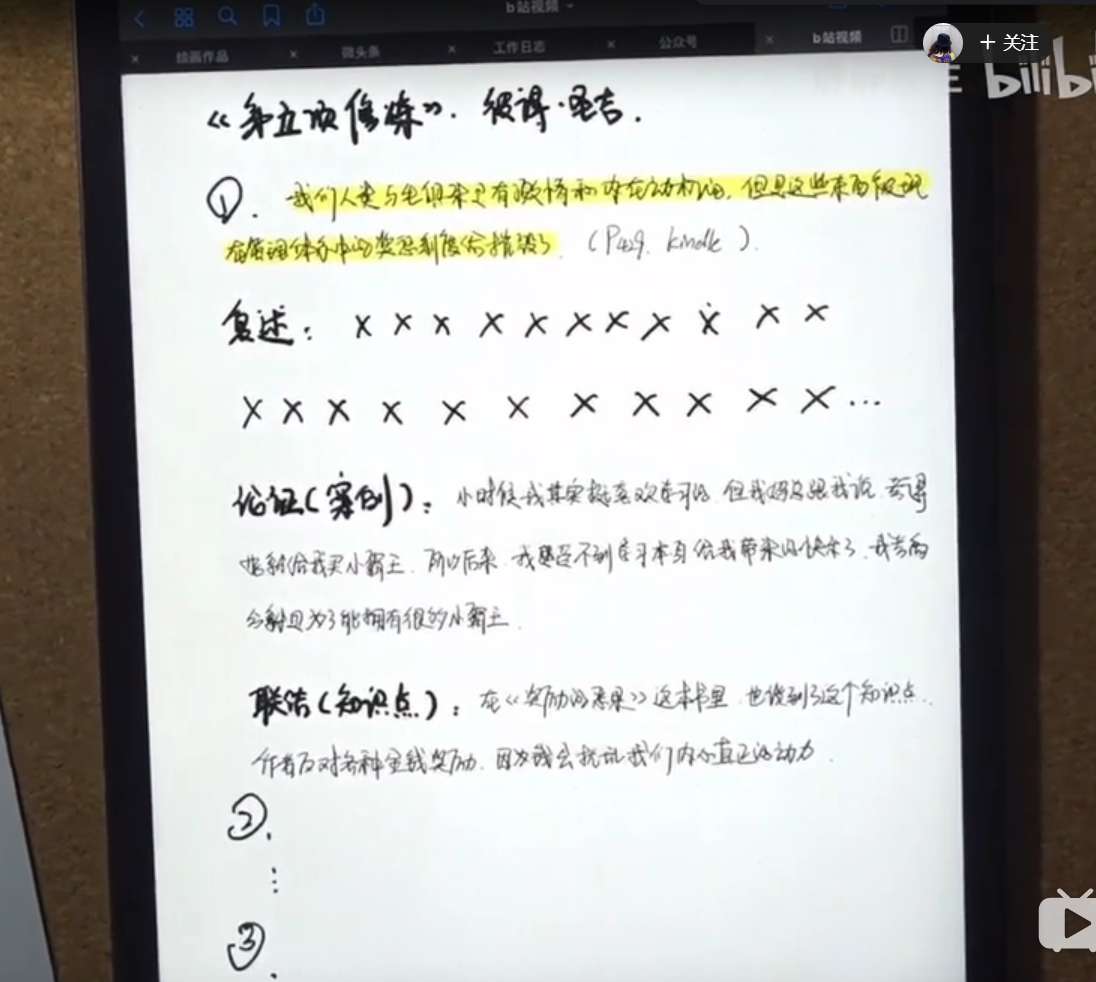 b站视频
绘画作品
微头条
工作日志
公众号
b站视频
+ 关注
bilibi
《第五项修炼》. 彼得·圣吉.
①. 我们人类与生俱来是有激情和内在动机的, 但是这些东西被现
在管理体系中的奖惩制度给摧毁了. (P429. kindle).
复述: × × × × × × × × × × ×
× × × × × × × × × × × ...
论证(案例): 小时候我其实挺喜欢学习的, 但我妈妈跟我说, 考得
好就给我买小霸王. 所以后来, 我感受不到学习本身给我带来的快乐了. 我考高
分就只为了能拥有很多小霸王.
联结(知识点): 在《奖励的恶果》这本书里, 也谈到了这个知识点.
作者反对各种金钱奖励, 因为钱会扰乱我们内心真正的动力.
②.
⋮
③.